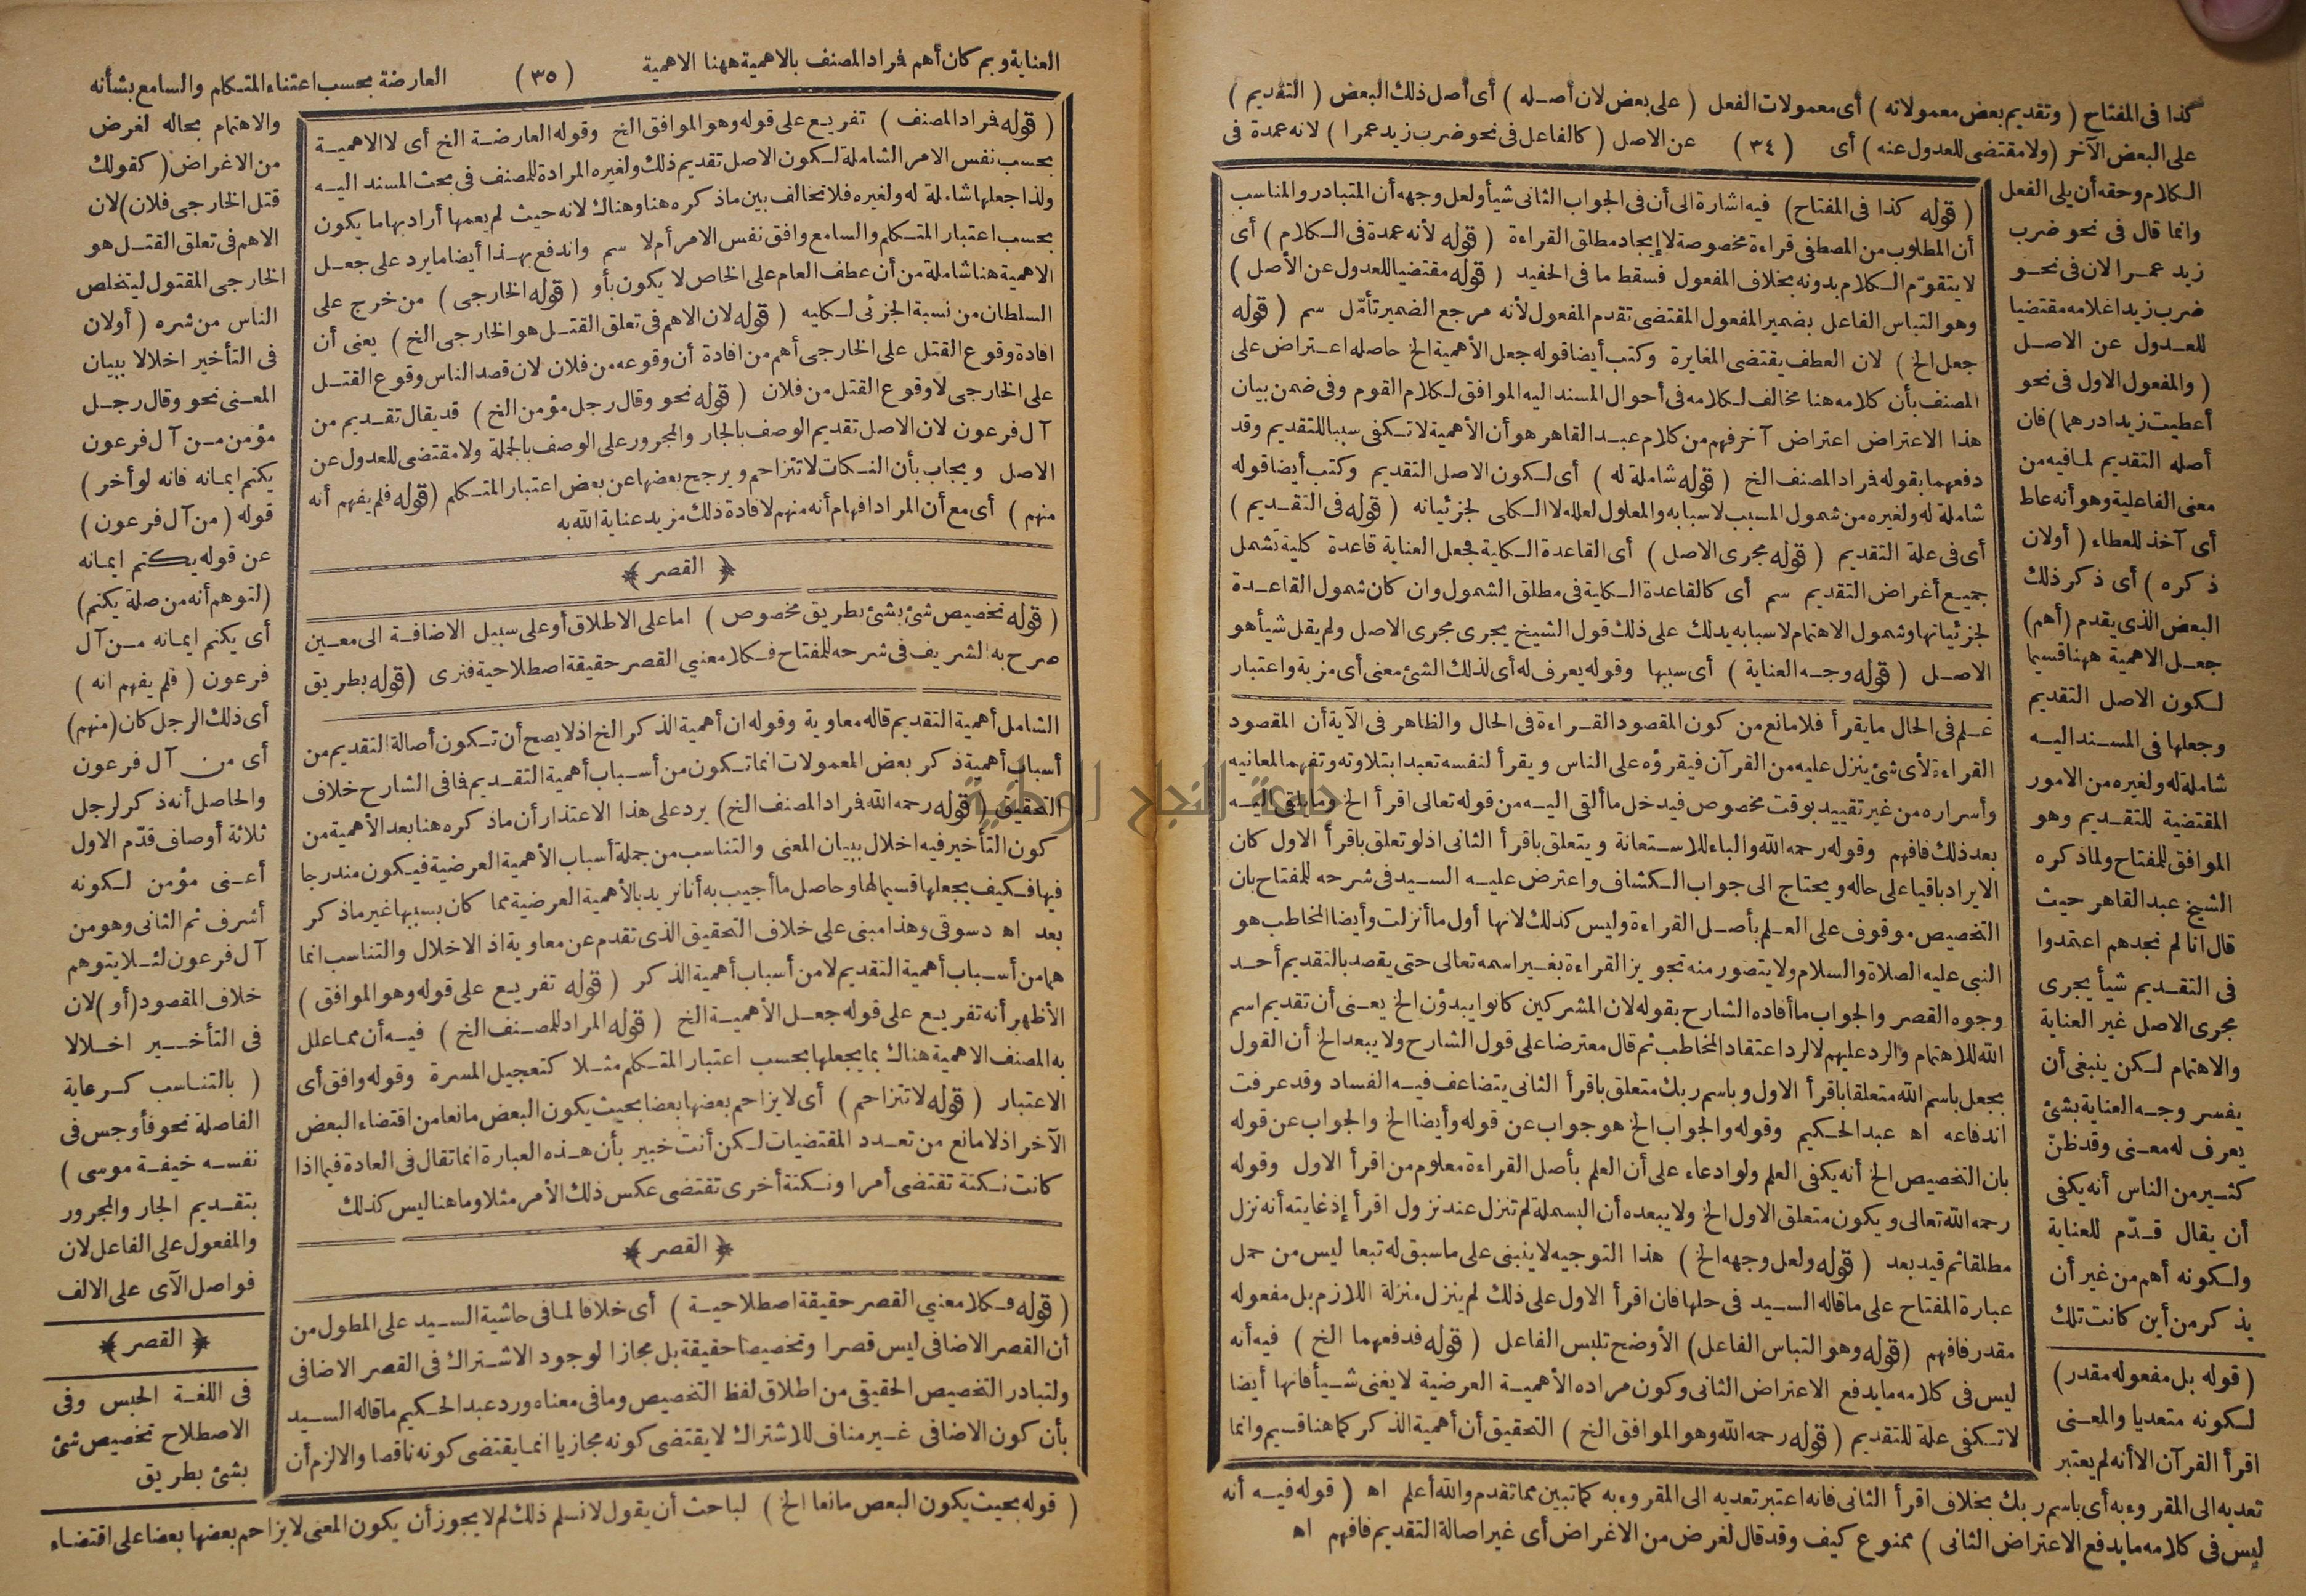 كذا فى المفتاح (وتقديم بعض معمولاته) أى معمولات الفعل (على بعض لان أصله) أى أصل ذلك البعض (التقديم)
على البعض الآخر (ولا مقتضى للعدول عنه) أى (٣٤) عن الاصل (كالفاعل فى نحو ضرب زيد عمرا) لانه عمدة فى
الكلام وحقه أن يلى الفعل
وانما قال فى نحو ضرب
زيد عمرا لان فى نحو
ضرب زيدا غلامه مقتضيا
للعدول عن الاصل
(والمفعول الاول فى نحو
أعطيت زيدا درهما) فان
أصله التقديم لما فيه من
معنى الفاعلية وهو أنه عاط
أى آخذ للعطاء (أولان
ذكره) أى ذكر ذلك
البعض الذى يقدم (أهم)
جعل الاهمية ههنا قسيما
لكون الاصل التقديم
وجعلها فى المسند اليه
شاملة له ولغيره من الامور
المقتضية للتقديم وهو
الموافق للمفتاح ولما ذكره
الشيخ عبد القاهر حيث
قال انا لم نجدهم اعتمدوا
فى التقديم شيأ يجرى
مجرى الاصل غير العناية
والاهتمام لكن ينبغى أن
يفسر وجه العناية بشئ
يعرف له معنى وقد ظنّ
كثير من الناس أنه يكفى
أن يقال قدّم للعناية
ولكونه أهم من غير أن
يذكر من أين كانت تلك
(قوله كذا فى المفتاح) فيه اشارة الى أن فى الجواب الثانى شيأ ولعل وجهه أن المتبادر والمناسب
أن المطلوب من المصطفى قراءة مخصوصة لا إيجاد مطلق القراءة (قوله لأنه عمدة فى الكلام) أى
لا يتقوّم الكلام بدونه بخلاف المفعول فسقط ما فى الحفيد (قوله مقتضيا للعدول عن الأصل)
وهو التباس الفاعل بضمير المفعول المقتضى تقدم المفعول لأنه مرجع الضمير تأمّل سم (قوله
جعل الخ) لان العطف يقتضى المغايرة وكتب أيضا قوله جعل الأهمية الخ حاصله اعتراض على
المصنف بأن كلامه هنا مخالف لكلامه فى أحوال المسند اليه الموافق لكلام القوم وفى ضمن بيان
هذا الاعتراض اعتراض آخر فهم من كلام عبد القاهر هو أن الأهمية لا تكفى سببا للتقديم وقد
دفعهما بقوله فراد المصنف الخ (قوله شاملة له) أى لكون الاصل التقديم وكتب أيضا قوله
شاملة له ولغيره من شمول المسبب لاسبابه والمعلول لعلله لا الكلى لجزئياته (قوله فى التقديم)
أى فى علة التقديم (قوله مجرى الاصل) أى القاعدة الكلية فجعل العناية قاعدة كلية تشمل
جميع أغراض التقديم سم أى كالقاعدة الكلية فى مطلق الشمول وان كان شمول القاعدة
لجزئياتها وشمول الاهتمام لاسبابه يدلك على ذلك قول الشيخ يجرى مجرى الاصل ولم يقل شيأ هو
الاصل (قوله وجه العناية) أى سببها وقوله يعرف له أى لذلك الشئ معنى أى مزية واعتبار
علم فى الحال ما يقرأ فلا مانع من كون المقصود القراءة فى الحال والظاهر فى الآية أن المقصود
القراءة لأى شئ ينزل عليه من القرآن فيقرؤه على الناس ويقرأ لنفسه تعبدا بتلاوته وتفهما لمعانيه
وأسراره من غير تقييد بوقت مخصوص فيدخل ما ألقى اليه من قوله تعالى اقرأ الخ وما يلقى اليه
بعد ذلك فافهم وقوله رحمه الله والباء للاستعانة ويتعلق باقرأ الثانى اذ لو تعلق باقرأ الاول كان
الايراد باقيا على حاله ويحتاج الى جواب الكشاف واعترض عليه السيد فى شرحه للمفتاح بان
التخصيص موقوف على العلم بأصل القراءة وليس كذلك لانها أول ما أنزلت وأيضا المخاطب هو
النبى عليه الصلاة والسلام ولا يتصور منه تجويز القراءة بغير اسمه تعالى حتى يقصد بالتقديم أحد
وجوه القصر والجواب ما أفاده الشارح بقوله لان المشركين كانوا يبدؤن الخ يعنى أن تقديم اسم
الله للاهتمام والرد عليهم لا لرد اعتقاد المخاطب ثم قال معترضا على قول الشارح ولا يبعد الخ أن القول
بجعل باسم الله متعلقا باقرأ الاول وباسم ربك متعلق باقرأ الثانى يتضاعف فيه الفساد وقد عرفت
اندفاعه اه عبد الحكيم وقوله والجواب الخ هو جواب عن قوله وأيضا الخ والجواب عن قوله
بان التخصيص الخ أنه يكفى العلم ولو ادعاء على أن العلم بأصل القراءة معلوم من اقرأ الاول وقوله
رحمه الله تعالى ويكون متعلق الاول الخ ولا يبعده أن البسملة لم تنزل عند نزول اقرأ إذ غايته أنه نزل
مطلقا ثم قيد بعد (قوله ولعل وجهه الخ) هذا التوجيه لا ينبنى على ما سبق له تبعا ليس من حمل
عبارة المفتاح على ما قاله السيد فى حلها فان اقرأ الاول على ذلك لم ينزل منزلة اللازم بل مفعوله
مقدر فافهم (قوله وهو التباس الفاعل) الأوضح تلبس الفاعل (قوله فدفعهما الخ) فيه أنه
ليس فى كلامه ما يدفع الاعتراض الثانى وكون مراده الأهمية العرضية لا يغنى شيأ فانها أيضا
لا تكفى علة للتقديم (قوله رحمه الله وهو الموافق الخ) التحقيق أن أهمية الذكر كما هنا قسيم وانما
(قوله بل مفعوله مقدر)
لكونه متعديا والمعنى
اقرأ القرآن الا أنه لم يعتبر
تعديه الى المقروء به أى باسم ربك بخلاف اقرأ الثانى فانه اعتبر تعديه الى المقروء به كما تبين مما تقدم والله أعلم اه (قوله فيه أنه
ليس فى كلامه ما يدفع الاعتراض الثانى) ممنوع كيف وقد قال لغرض من الاغراض أى غير اصالة التقديم فافهم اه
العناية وبم كان أهم فراد المصنف بالاهمية ههنا الاهمية (٣٥) العارضة بحسب اعتناء المتكلم والسامع بشأنه
والاهتمام بحاله لغرض
من الاغراض (كقولك
قتل الخارجى فلان) لان
الاهم فى تعلق القتل هو
الخارجى المقتول ليتخلص
الناس من شره (أولان
فى التأخير اخلالا ببيان
المعنى نحو وقال رجل
مؤمن من آل فرعون
يكتم ايمانه فانه لو أخر)
قوله (من آل فرعون)
عن قوله يكتم ايمانه
(لتوهم أنه من صلة يكتم)
أى يكتم ايمانه من آل
فرعون (فلم يفهم انه)
أى ذلك الرجل كان (منهم)
أى من آل فرعون
والحاصل أنه ذكر لرجل
ثلاثة أوصاف قدّم الاول
أعنى مؤمن لكونه
أشرف ثم الثانى وهو من
آل فرعون لئلا يتوهم
خلاف المقصود (أو) لان
فى التأخير اخلالا
(بالتناسب كرعاية
الفاصلة نحو فأوجس فى
نفسه خيفة موسى)
بتقديم الجار والمجرور
والمفعول على الفاعل لان
فواصل الآى على الالف
﴿القصر﴾
فى اللغة الحبس وفى
الاصطلاح تخصيص شئ
بشئ بطريق
(قوله فراد المصنف) تفريع على قوله وهو الموافق الخ وقوله العارضة الخ أى لا الاهمية
بحسب نفس الامر الشاملة لكون الاصل تقديم ذلك ولغيره المرادة للمصنف فى بحث المسند اليه
ولذا جعلها شاملة له ولغيره فلا تخالف بين ما ذكره هنا وهناك لانه حيث لم يعمها أراد بها ما يكون
بحسب اعتبار المتكلم والسامع وافق نفس الامر أم لا سم واندفع بهذا أيضا ما يرد على جعل
الاهمية هنا شاملة من أن عطف العام على الخاص لا يكون بأو (قوله الخارجى) من خرج على
السلطان من نسبة الجزئى لكليه (قوله لان الاهم فى تعلق القتل هو الخارجى الخ) يعنى أن
افادة وقوع القتل على الخارجى أهم من افادة أن وقوعه من فلان لان قصد الناس وقوع القتل
على الخارجى لا وقوع القتل من فلان (قوله نحو وقال رجل مؤمن الخ) قد يقال تقديم من
آل فرعون لان الاصل تقديم الوصف بالجار والمجرور على الوصف بالجملة ولا مقتضى للعدول عن
الاصل ويجاب بأن النكات لا تتزاحم ويرجح بعضها عن بعض اعتبار المتكلم (قوله فلم يفهم أنه
منهم) أى مع أن المراد افهام أنه منهم لافادة ذلك مزيد عناية الله به
﴿القصر﴾
(قوله تخصيص شئ بشئ بطريق مخصوص) اما على الاطلاق أو على سبيل الاضافة الى معين
صرح به الشريف فى شرحه للمفتاح فكلا معنيى القصر حقيقة اصطلاحية فنرى (قوله بطريق
الشامل أهمية التقديم قاله معاوية وقوله ان أهمية الذكر الخ اذ لا يصح أن تكون أصالة التقديم من
أسباب أهمية ذكر بعض المعمولات انما تكون من أسباب أهمية التقديم فما فى الشارح خلاف
التحقيق (قوله رحمه الله فراد المصنف الخ) يرد على هذا الاعتذار أن ما ذكره هنا بعد الأهمية من
كون التأخير فيه اخلال ببيان المعنى والتناسب من جملة أسباب الأهمية العرضية فيكون مندرجا
فيها فكيف يجعلها قسيما لها وحاصل ما أجيب به أنا نريد بالأهمية العرضية مما كان بسببها غير ما ذكر
بعد اه دسوقى وهذا مبنى على خلاف التحقيق الذى تقدم عن معاوية اذ الاخلال والتناسب انما
هما من أسباب أهمية التقديم لا من أسباب أهمية الذكر (قوله تفريع على قوله وهو الموافق)
الأظهر أنه تفريع على قوله جعل الأهمية الخ (قوله المراد للمصنف الخ) فيه أن مما علل
به المصنف الاهمية هناك بما يجعلها بحسب اعتبار المتكلم مثلا كتعجيل المسرة وقوله وافق أى
الاعتبار (قوله لا تتزاحم) أى لا يزاحم بعضها بعضا بحيث يكون البعض مانعا من اقتضاء البعض
الآخر اذ لا مانع من تعدد المقتضيات لكن أنت خبير بأن هذه العبارة انما تقال فى العادة فيما اذا
كانت نكتة تقتضى أمرا ونكتة أخرى تقتضى عكس ذلك الأمر مثلا وما هنا ليس كذلك
﴿القصر﴾
(قوله فكلا معنيى القصر حقيقة اصطلاحية) أى خلافا لما فى حاشية السيد على المطول من
أن القصر الاضافى ليس قصرا وتخصيصا حقيقة بل مجازا لوجود الاشتراك فى القصر الاضافى
ولتبادر التخصيص الحقيقى من اطلاق لفظ التخصيص وما فى معناه ورد عبد الحكيم ما قاله السيد
بأن كون الاضافى غير مناف للاشتراك لا يقتضى كونه مجازيا انما يقتضى كونه ناقصا والا لزم أن
(قوله بحيث يكون البعض مانعا الخ) لباحث أن يقول لا نسلم ذلك لم لا يجوز أن يكون المعنى لا يزاحم بعضها بعضا على اقتضاء
جامعة النجاح الوطنية